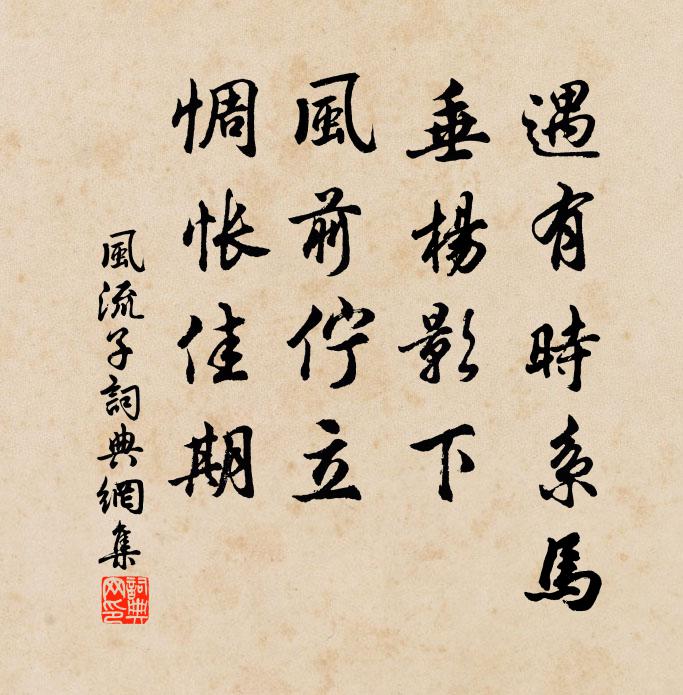 遇有時系馬
垂楊影下
風前佇立
惆悵佳期
風流子詞典網集
詞典网印